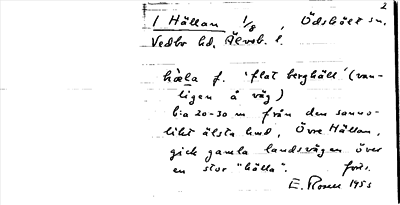 2
1 Hällan 1/8, Ödsköłt sn.
Vedbo hd. Älvsb. l.
hæla f. 'flat berghäll' (van-
ligen å väg)
b:a 20-30 m från den sanno-
likt älsta hmd, Övre Hällan,
gick gamla landsvägen över
en stor "hälla". forts.
E. Rosell 1955